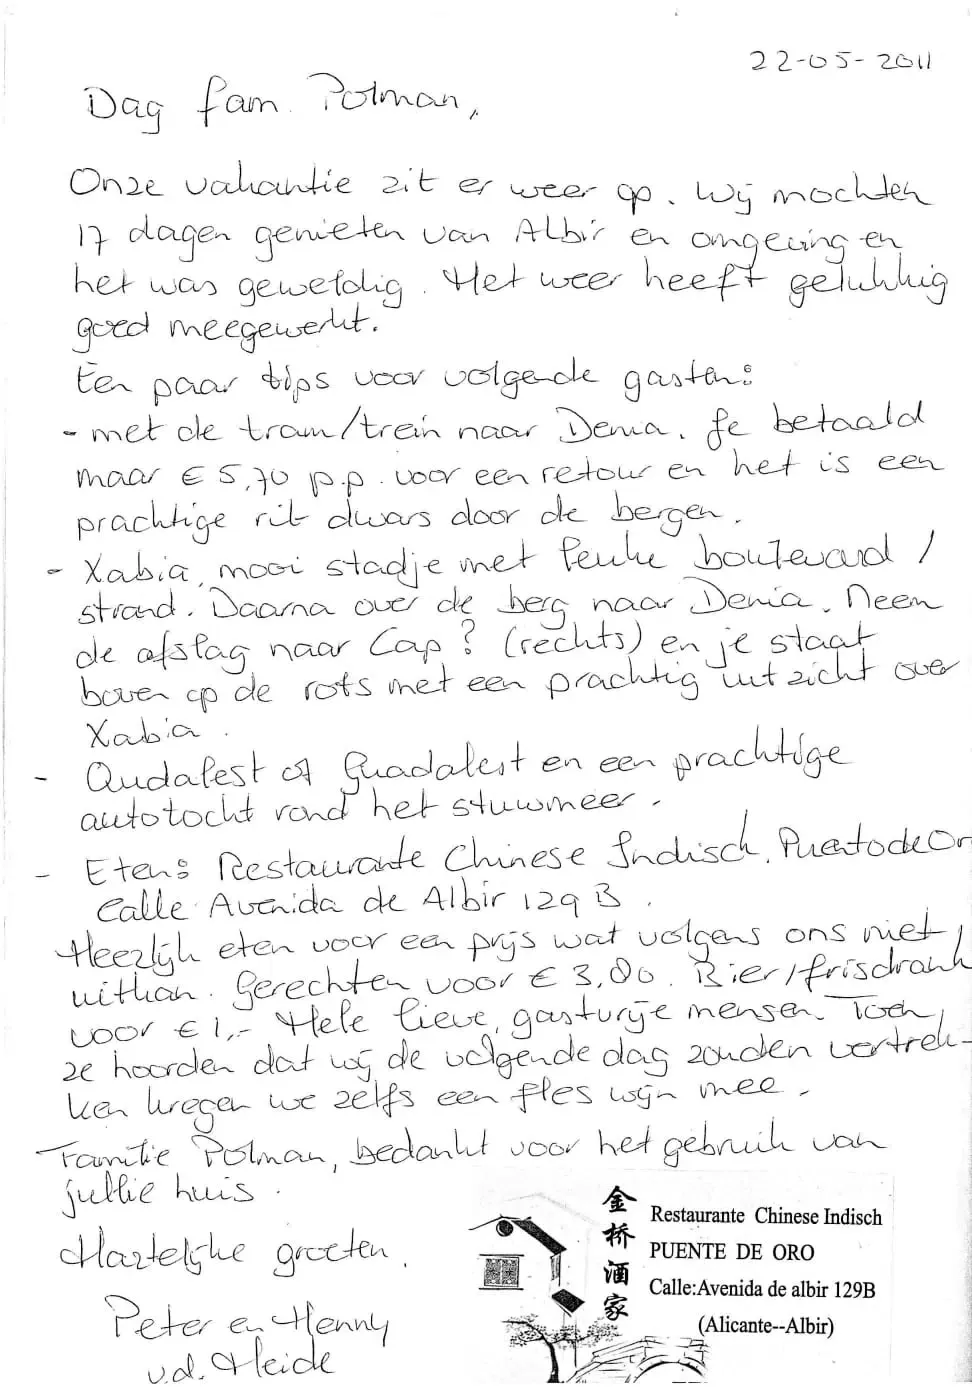 22-05-2011
Dag fam. Polman,
Onze vakantie zit er weer op. Wij mochten
17 dagen genieten van Albir en omgeving en
het was geweldig. Het weer heeft gelukkig
goed meegewerkt.
Een paar tips voor volgende gasten:
- met de tram/trein naar Denia. Je betaald
maar € 5,70 p.p. voor een retour en het is een
prachtige rit dwars door de bergen.
- Xabia, mooi stadje met leuke boulevard /
strand. Daarna over de berg naar Denia. Neem
de afslag naar Cap? (rechts) en je staat
boven op de rots met een prachtig uitzicht over
Xabia.
- Qudalest of Guadalest en een prachtige
autotocht rond het stuwmeer.
- Eten: Restaurante Chinese Indisch, Puento de Oro
Calle Avenida de Albir 129 B.
Heerlijk eten voor een prijs wat volgens ons niet
uitkan. Gerechten voor € 3,80. Bier/frisdrank
voor € 1,- Hele lieve, gastvrije mensen. Toen
ze hoorden dat wij de volgende dag zouden vertrek-
ken kregen we zelfs een fles wijn mee.
Familie Polman, bedankt voor het gebruik van
jullie huis.
Hartelijke groeten,
Peter en Henny
v.d. Heide
金桥酒家
Restaurante Chinese Indisch
PUENTE DE ORO
Calle:Avenida de albir 129B
(Alicante--Albir)